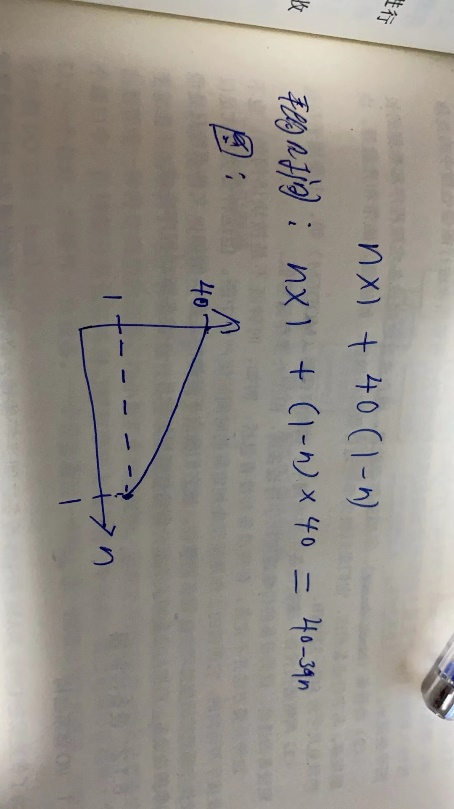 n×1 + 40(1-n)
n×1 + (1-n)×40 = 40-39n
图:
40
1
1
n